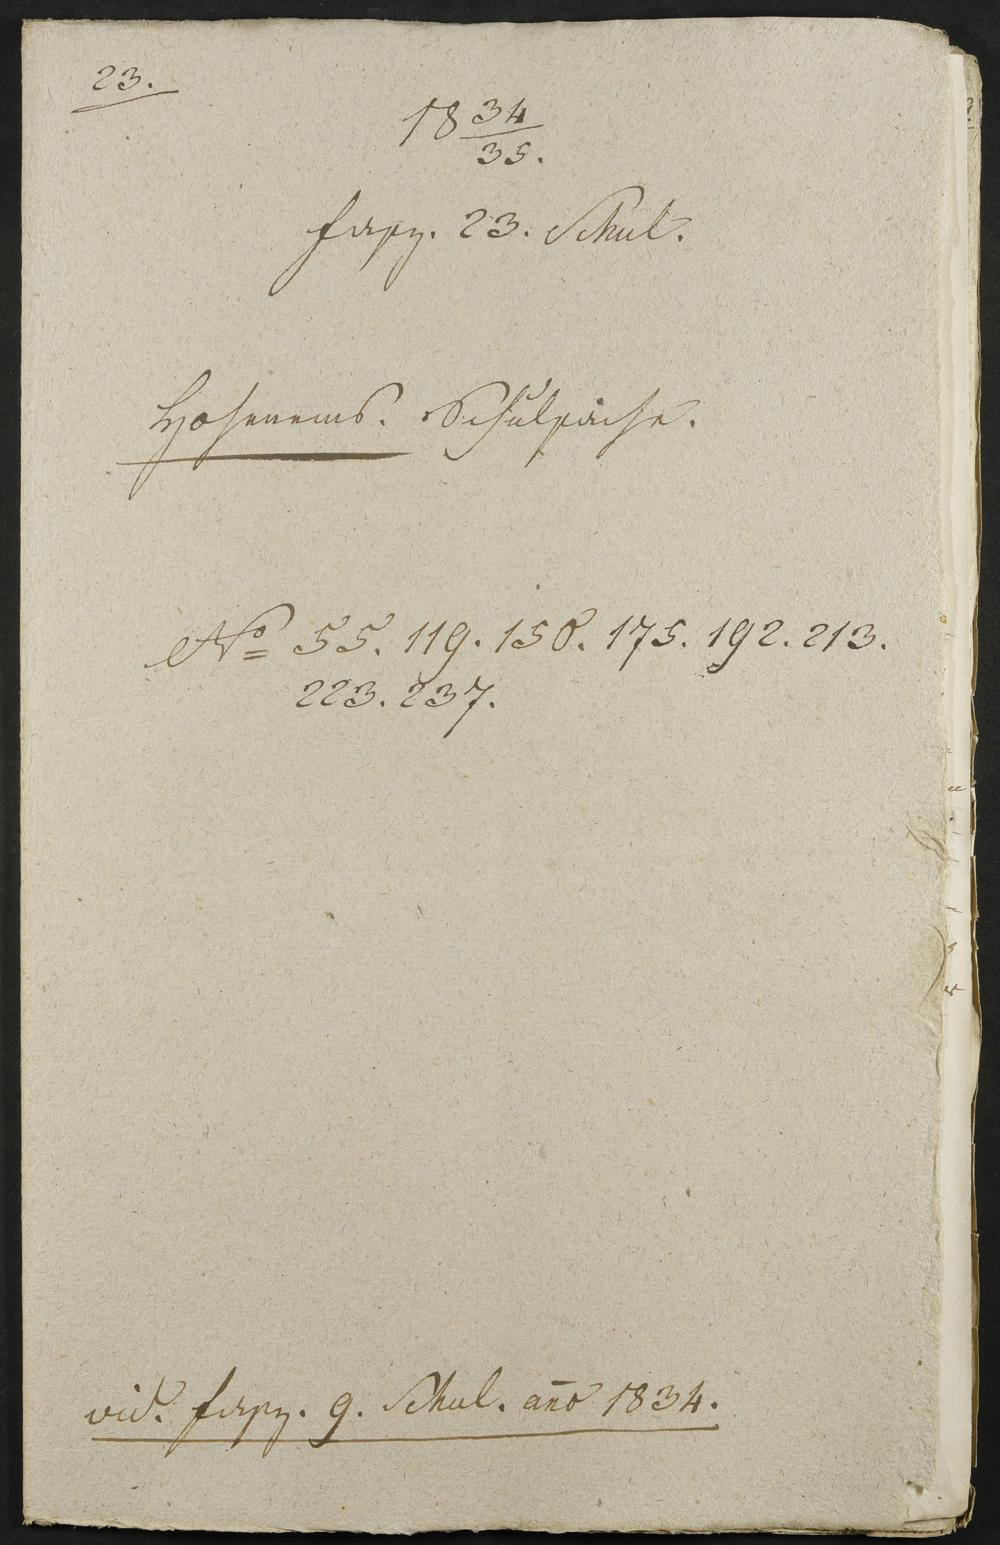 23.
18 34/35.
Fasz. 23. Schul.
Hohenems. Schulsache.
No 55. 119. 150. 175. 192. 213.
223. 237.
vid. Fasz. 9. Schul. año 1834.